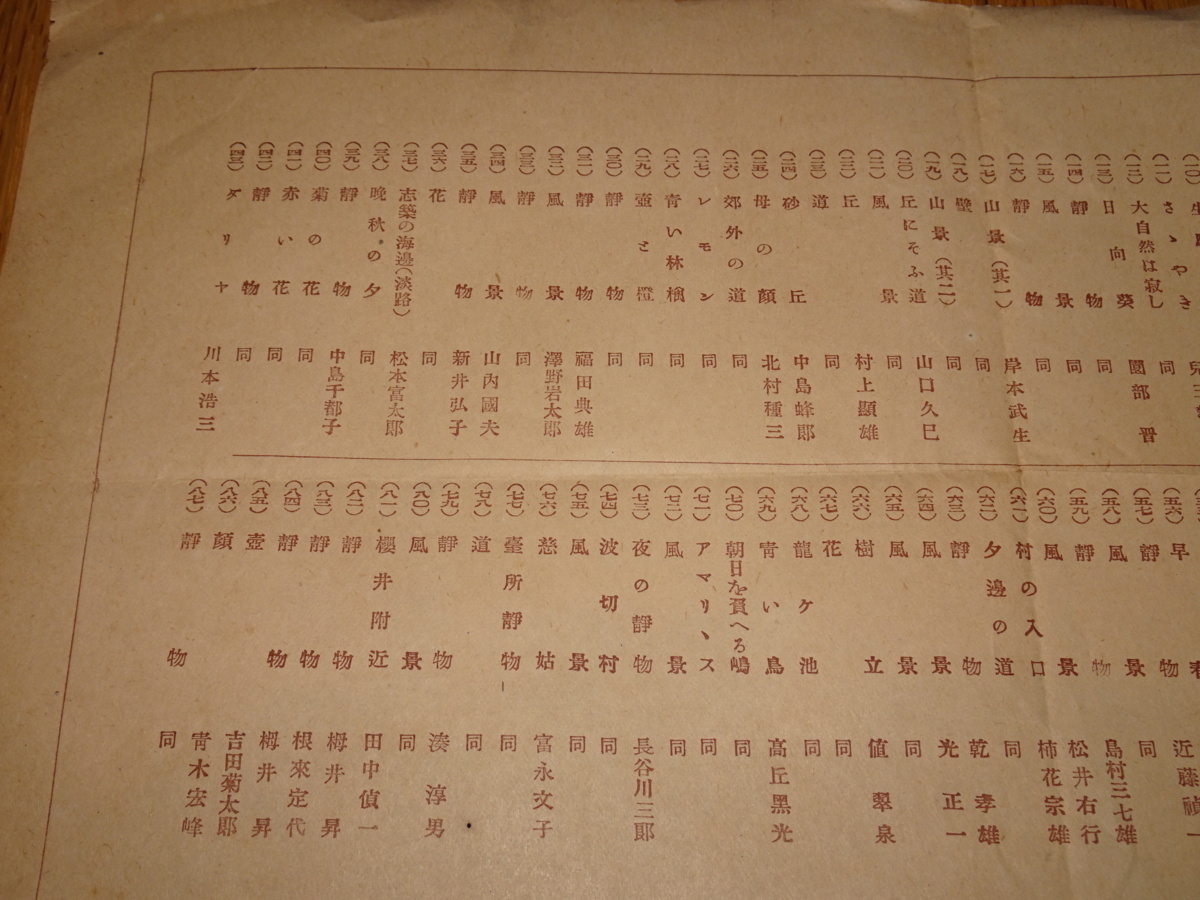 (一一) さゝやき
(一二) 大自然は寂し 同
(一三) 日向葵 園部晋
(一四) 靜物 同
(一五) 風景 同
(一六) 靜物 同
(一七) 山景(其一) 岸本武生
(一八) 壁 同
(一九) 山景(其二) 同
(二〇) 丘にそふ道 山口久巳
(二一) 風景 同
(二二) 丘 村上顯雄
(二三) 道 同
(二四) 砂丘 中島蜂郎
(二五) 母の顏 北村種三
(二六) 郊外の道 同
(二七) レモン 同
(二八) 青い林檎 同
(二九) 壺と橙 同
(三〇) 靜物 同
(三一) 靜物 福田典雄
(三二) 風景 澤野岩太郎
(三三) 靜物 同
(三四) 風景 山内國夫
(三五) 靜物 新井弘子
(三六) 花 同
(三七) 志築の海邊(淡路) 松本富太郎
(三八) 晩秋の夕 同
(三九) 靜物 中島千都子
(四〇) 菊の花 同
(四一) 赤い花 同
(四二) 靜物 同
(四三) ダリヤ 川本浩三
(五六) 早春
(五七) 靜物 近藤禎一
(五八) 風景 同
(五九) 靜物 島村三七雄
(六〇) 風景 松井右行
(六一) 村の入口 柿花宗雄
(六二) 夕邊の道 同
(六三) 靜物 乾孝雄
(六四) 風景 光正一
(六五) 風景 同
(六六) 樹立 値翠泉
(六七) 花 同
(六八) 龍ケ池 同
(六九) 靑い鳥 高丘黑光
(七〇) 朝日を負へる嶋 同
(七一) アマリヽス 同
(七二) 風景 同
(七三) 夜の靜物 長谷川三郎
(七四) 波切村 同
(七五) 風景 同
(七六) 慈姑 富永文子
(七七) 臺所靜物 同
(七八) 道 同
(七九) 靜物 湊淳男
(八〇) 風景 同
(八一) 櫻井附近 田中偵一
(八二) 靜物 栂井昇
(八三) 靜物 根來定代
(八四) 靜物 栂井昇
(八五) 壺 吉田菊太郎
(八六) 顏 靑木宏峰
(八七) 靜物 同